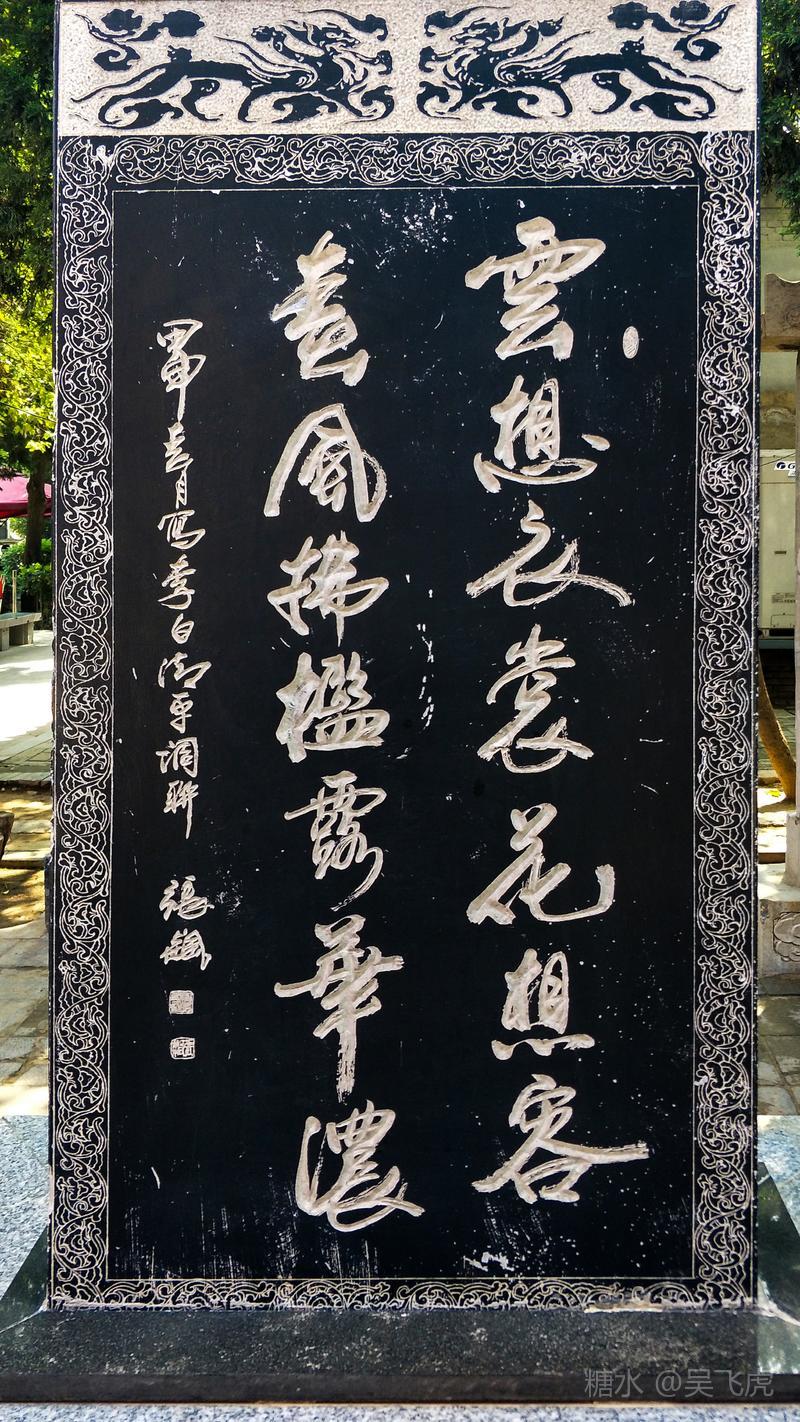 雲想衣裳花想容
春風拂檻露華濃
甲申春月寫李白清平調聯 張
糖水 @吴飞虎